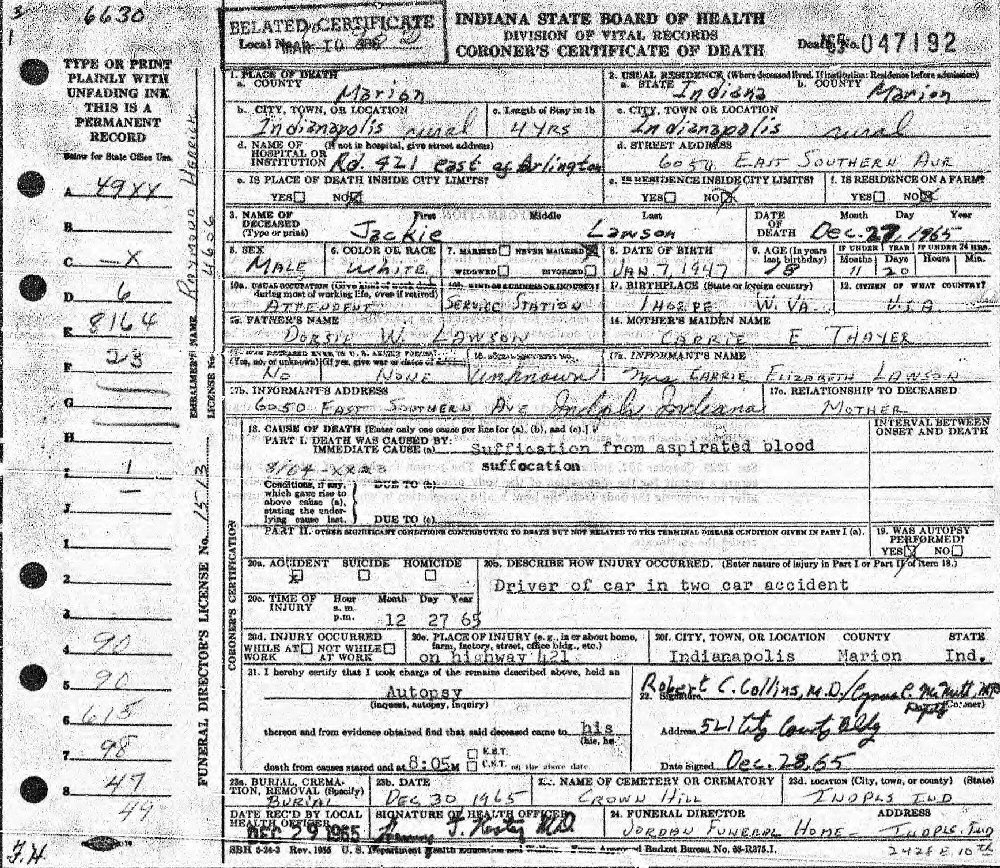 3 6630
1
BELATED CERTIFICATE
INDIANA STATE BOARD OF HEALTH
DIVISION OF VITAL RECORDS
CORONER'S CERTIFICATE OF DEATH
Local No.
Death No. 65 047192
TYPE OR PRINT
PLAINLY WITH
UNFADING INK
THIS IS A
PERMANENT
RECORD
Below for State Office Use
A. 49XX
B.
C. -X
D. 6
E. 8164
F. 23
G.
H.
I. 1
J. —
1.
2.
3.
4. 90
5. 90
6. 615
7. 98
8. 47
49
F.H.
FUNERAL DIRECTOR'S LICENSE No. 1513
EMBALMER'S NAME Raymond Herrick
LICENSE No. 4606
CORONER'S CERTIFICATION
1. PLACE OF DEATH
a. COUNTY Marion
2. USUAL RESIDENCE (Where deceased lived. If institution: Residence before admission)
a. STATE Indiana b. COUNTY Marion
b. CITY, TOWN, OR LOCATION Indianapolis rural
c. Length of Stay in 1b 4 YRS
c. CITY, TOWN OR LOCATION Indianapolis rural
d. NAME OF HOSPITAL OR INSTITUTION (If not in hospital, give street address) Rd. 421 east of Arlington
d. STREET ADDRESS 6050 EAST SOUTHERN AVE
e. IS PLACE OF DEATH INSIDE CITY LIMITS?
YES NO X
e. IS RESIDENCE INSIDE CITY LIMITS?
YES NO X
f. IS RESIDENCE ON A FARM?
YES NO X
3. NAME OF DECEASED (Type or print) First Middle Last
Jackie Lawson
DATE OF DEATH Month Day Year
Dec. 27, 1965
5. SEX MALE
6. COLOR OR RACE White
7. MARRIED NEVER MARRIED X
WIDOWED DIVORCED
8. DATE OF BIRTH JAN 7, 1947
9. AGE (In years last birthday) 18
IF UNDER 1 YEAR Months 11 Days 20
IF UNDER 24 HRS. Hours Min.
10a. USUAL OCCUPATION (Give kind of work done during most of working life, even if retired) ATTENDENT
10b. KIND OF BUSINESS OR INDUSTRY SERVICE STATION
11. BIRTHPLACE (State or foreign country) THORPE W. VA.
12. CITIZEN OF WHAT COUNTRY? U.S.A.
13. FATHER'S NAME DORSIE W. LAWSON
14. MOTHER'S MAIDEN NAME CARRIE E THAYER
15. WAS DECEASED EVER IN U. S. ARMED FORCES?
(Yes, no, or unknown) (If yes, give war or dates of service)
No NONE
16. SOCIAL SECURITY NO. Unknown
17a. INFORMANT'S NAME Mrs CARRIE ELIZABETH LAWSON
17b. INFORMANT'S ADDRESS
6050 EAST SOUTHERN AVE Indpls Indiana
17c. RELATIONSHIP TO DECEASED
MOTHER
18. CAUSE OF DEATH [Enter only one cause per line for (a), (b), and (c).]
INTERVAL BETWEEN ONSET AND DEATH
PART I. DEATH WAS CAUSED BY:
IMMEDIATE CAUSE (a) Suffication from aspirated blood
suffocation
Conditions, if any, which gave rise to above cause (a), stating the underlying cause last.
DUE TO (b)
DUE TO (c)
PART II. OTHER SIGNIFICANT CONDITIONS CONTRIBUTING TO DEATH BUT NOT RELATED TO THE TERMINAL DISEASE CONDITION GIVEN IN PART I (a).
19. WAS AUTOPSY PERFORMED?
YES X NO
20a. ACCIDENT X SUICIDE HOMICIDE
20b. DESCRIBE HOW INJURY OCCURRED. (Enter nature of injury in Part I or Part II of item 18.)
Driver of car in two car accident
20c. TIME OF INJURY Hour a. m. p.m. Month Day Year
12 27 65
20d. INJURY OCCURRED
WHILE AT WORK NOT WHILE AT WORK
20e. PLACE OF INJURY (e. g., in or about home, farm, factory, street, office bldg., etc.)
on highway 421
20f. CITY, TOWN, OR LOCATION COUNTY STATE
Indianapolis Marion Ind.
21. I hereby certify that I took charge of the remains described above, held an
Autopsy
(inquest, autopsy, inquiry)
thereon and from evidence obtained find that said deceased came to his
(his, her)
death from causes stated and at 8:05 M E.S.T. C.S.T. on the above date
22. Signature Robert C. Collins, M.D./Cyrus C. McNutt, MD
Deputy (Coroner)
Address 521 City County Bldg
Date Signed Dec. 28, 65
23a. BURIAL, CREMATION, REMOVAL (Specify) BURIAL
23b. DATE DEC 30 1965
23c. NAME OF CEMETERY OR CREMATORY CROWN HILL
23d. LOCATION (City, town, or county) (State) INDPLS IND
DATE REC'D BY LOCAL HEALTH OFFICER DEC 29 1965
SIGNATURE OF HEALTH OFFICER
24. FUNERAL DIRECTOR ADDRESS
JORDAN FUNERAL HOME - INDPLS. IND
2428 E. 10th
SBH 5-24-3 Rev. 1955 U. S. Department Health Education Budget Bureau No. 68-R375.1.